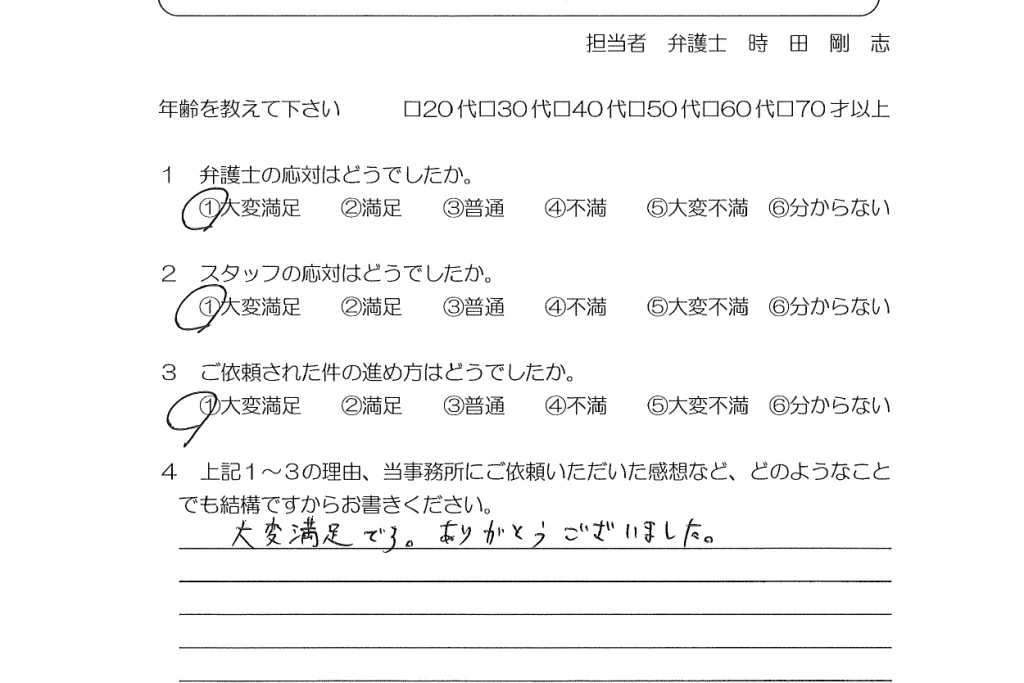 担当者　弁護士　時　田　剛　志
年齢を教えて下さい　　　□20代□30代□40代□50代□60代□70才以上
１　弁護士の応対はどうでしたか。
①大変満足　②満足　③普通　④不満　⑤大変不満　⑥分からない
２　スタッフの応対はどうでしたか。
①大変満足　②満足　③普通　④不満　⑤大変不満　⑥分からない
３　ご依頼された件の進め方はどうでしたか。
①大変満足　②満足　③普通　④不満　⑤大変不満　⑥分からない
４　上記１～３の理由、当事務所にご依頼いただいた感想など、どのようなこと
でも結構ですからお書きください。
大変満足です。ありがとうございました。